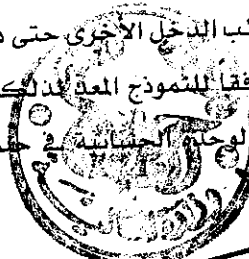 ب الدخل الأخرى حتى
فقا للنموذج المعد لذلك
لوحدة الحسابية في